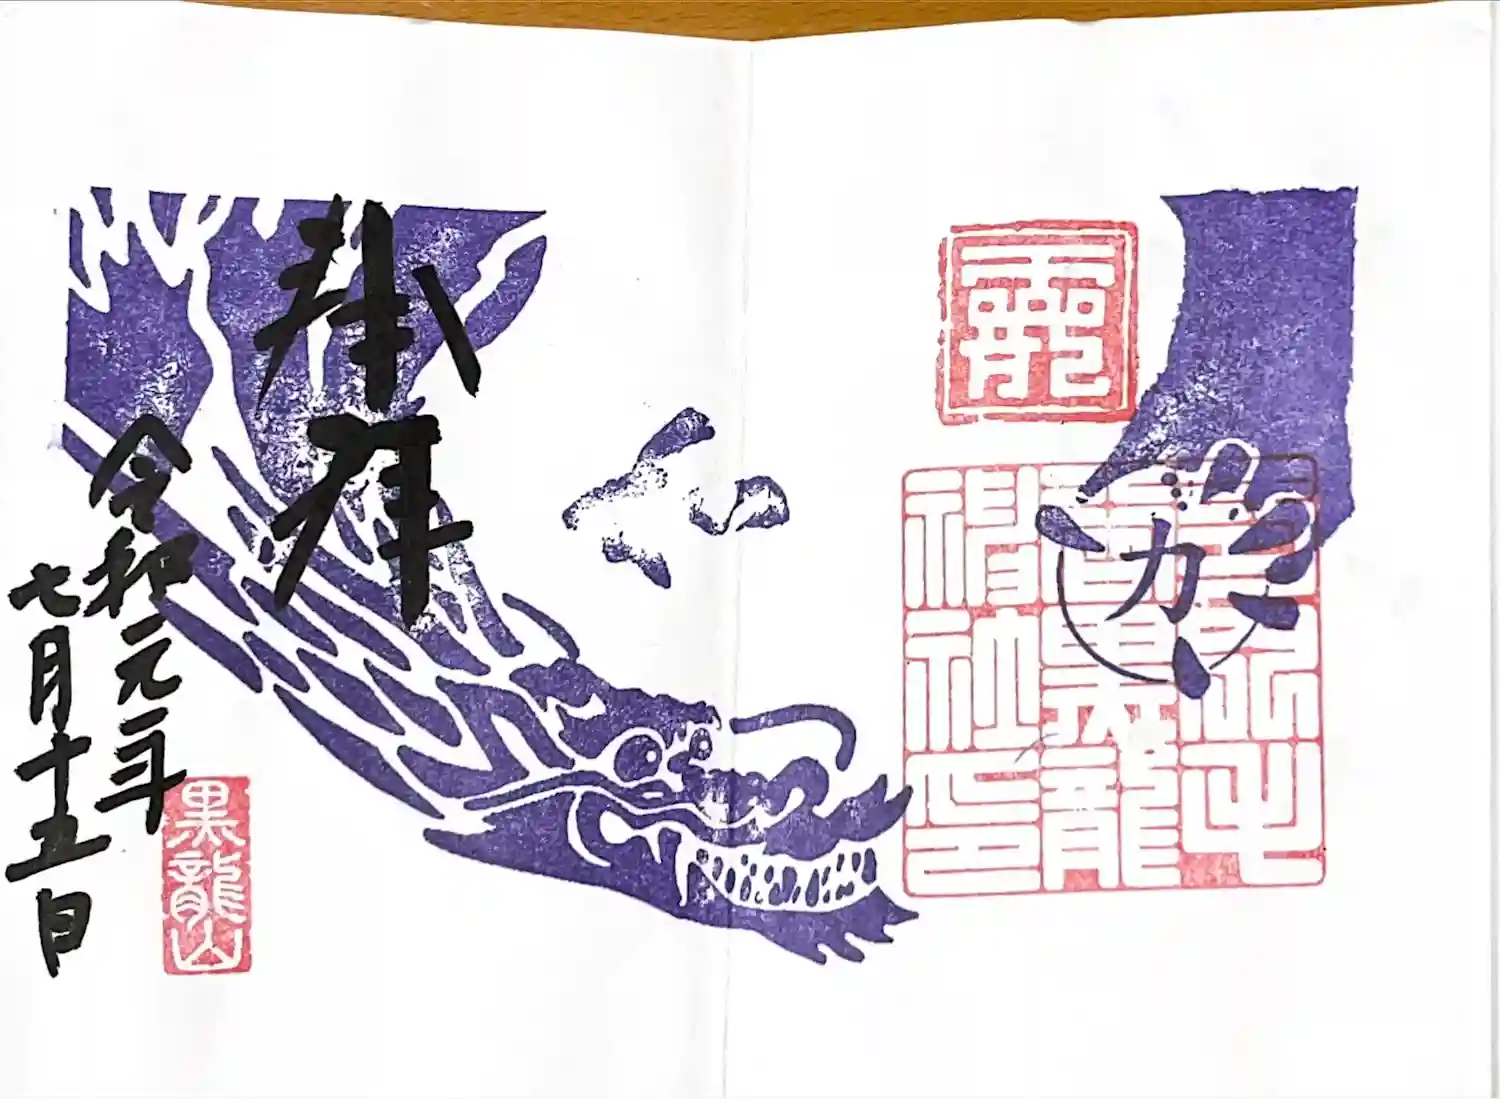 力
黒龍
神社印
奉拝
令和元年
七月十五日
黒龍山